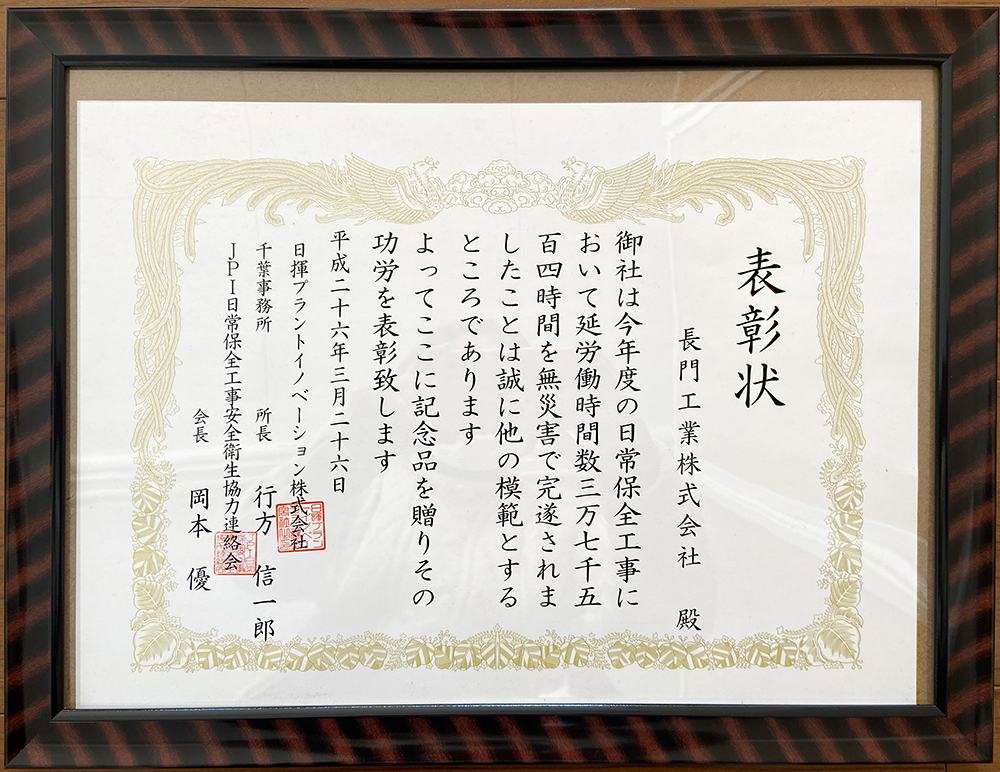 表彰状
長門工業株式会社 殿
御社は今年度の日常保全工事に
おいて延労働時間数三万七千五
百四時間を無災害で完遂されま
したことは誠に他の模範とする
ところであります
よってここに記念品を贈りその
功労を表彰致します
平成二十六年三月二十六日
日揮プラントイノベーション株式会社
千葉事務所 所長 行方 信一郎
JPI日常保全工事安全衛生協力連絡会
会長 岡本 優